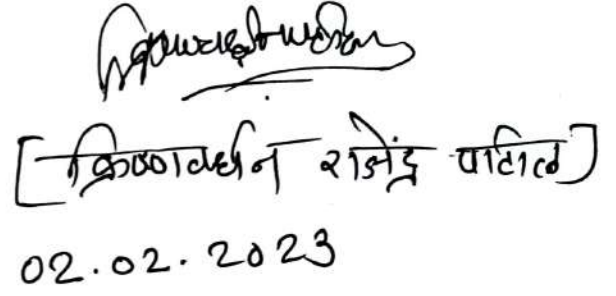 [क्रिष्णवर्धन राजेंद्र पाटिल]
02.02.2023